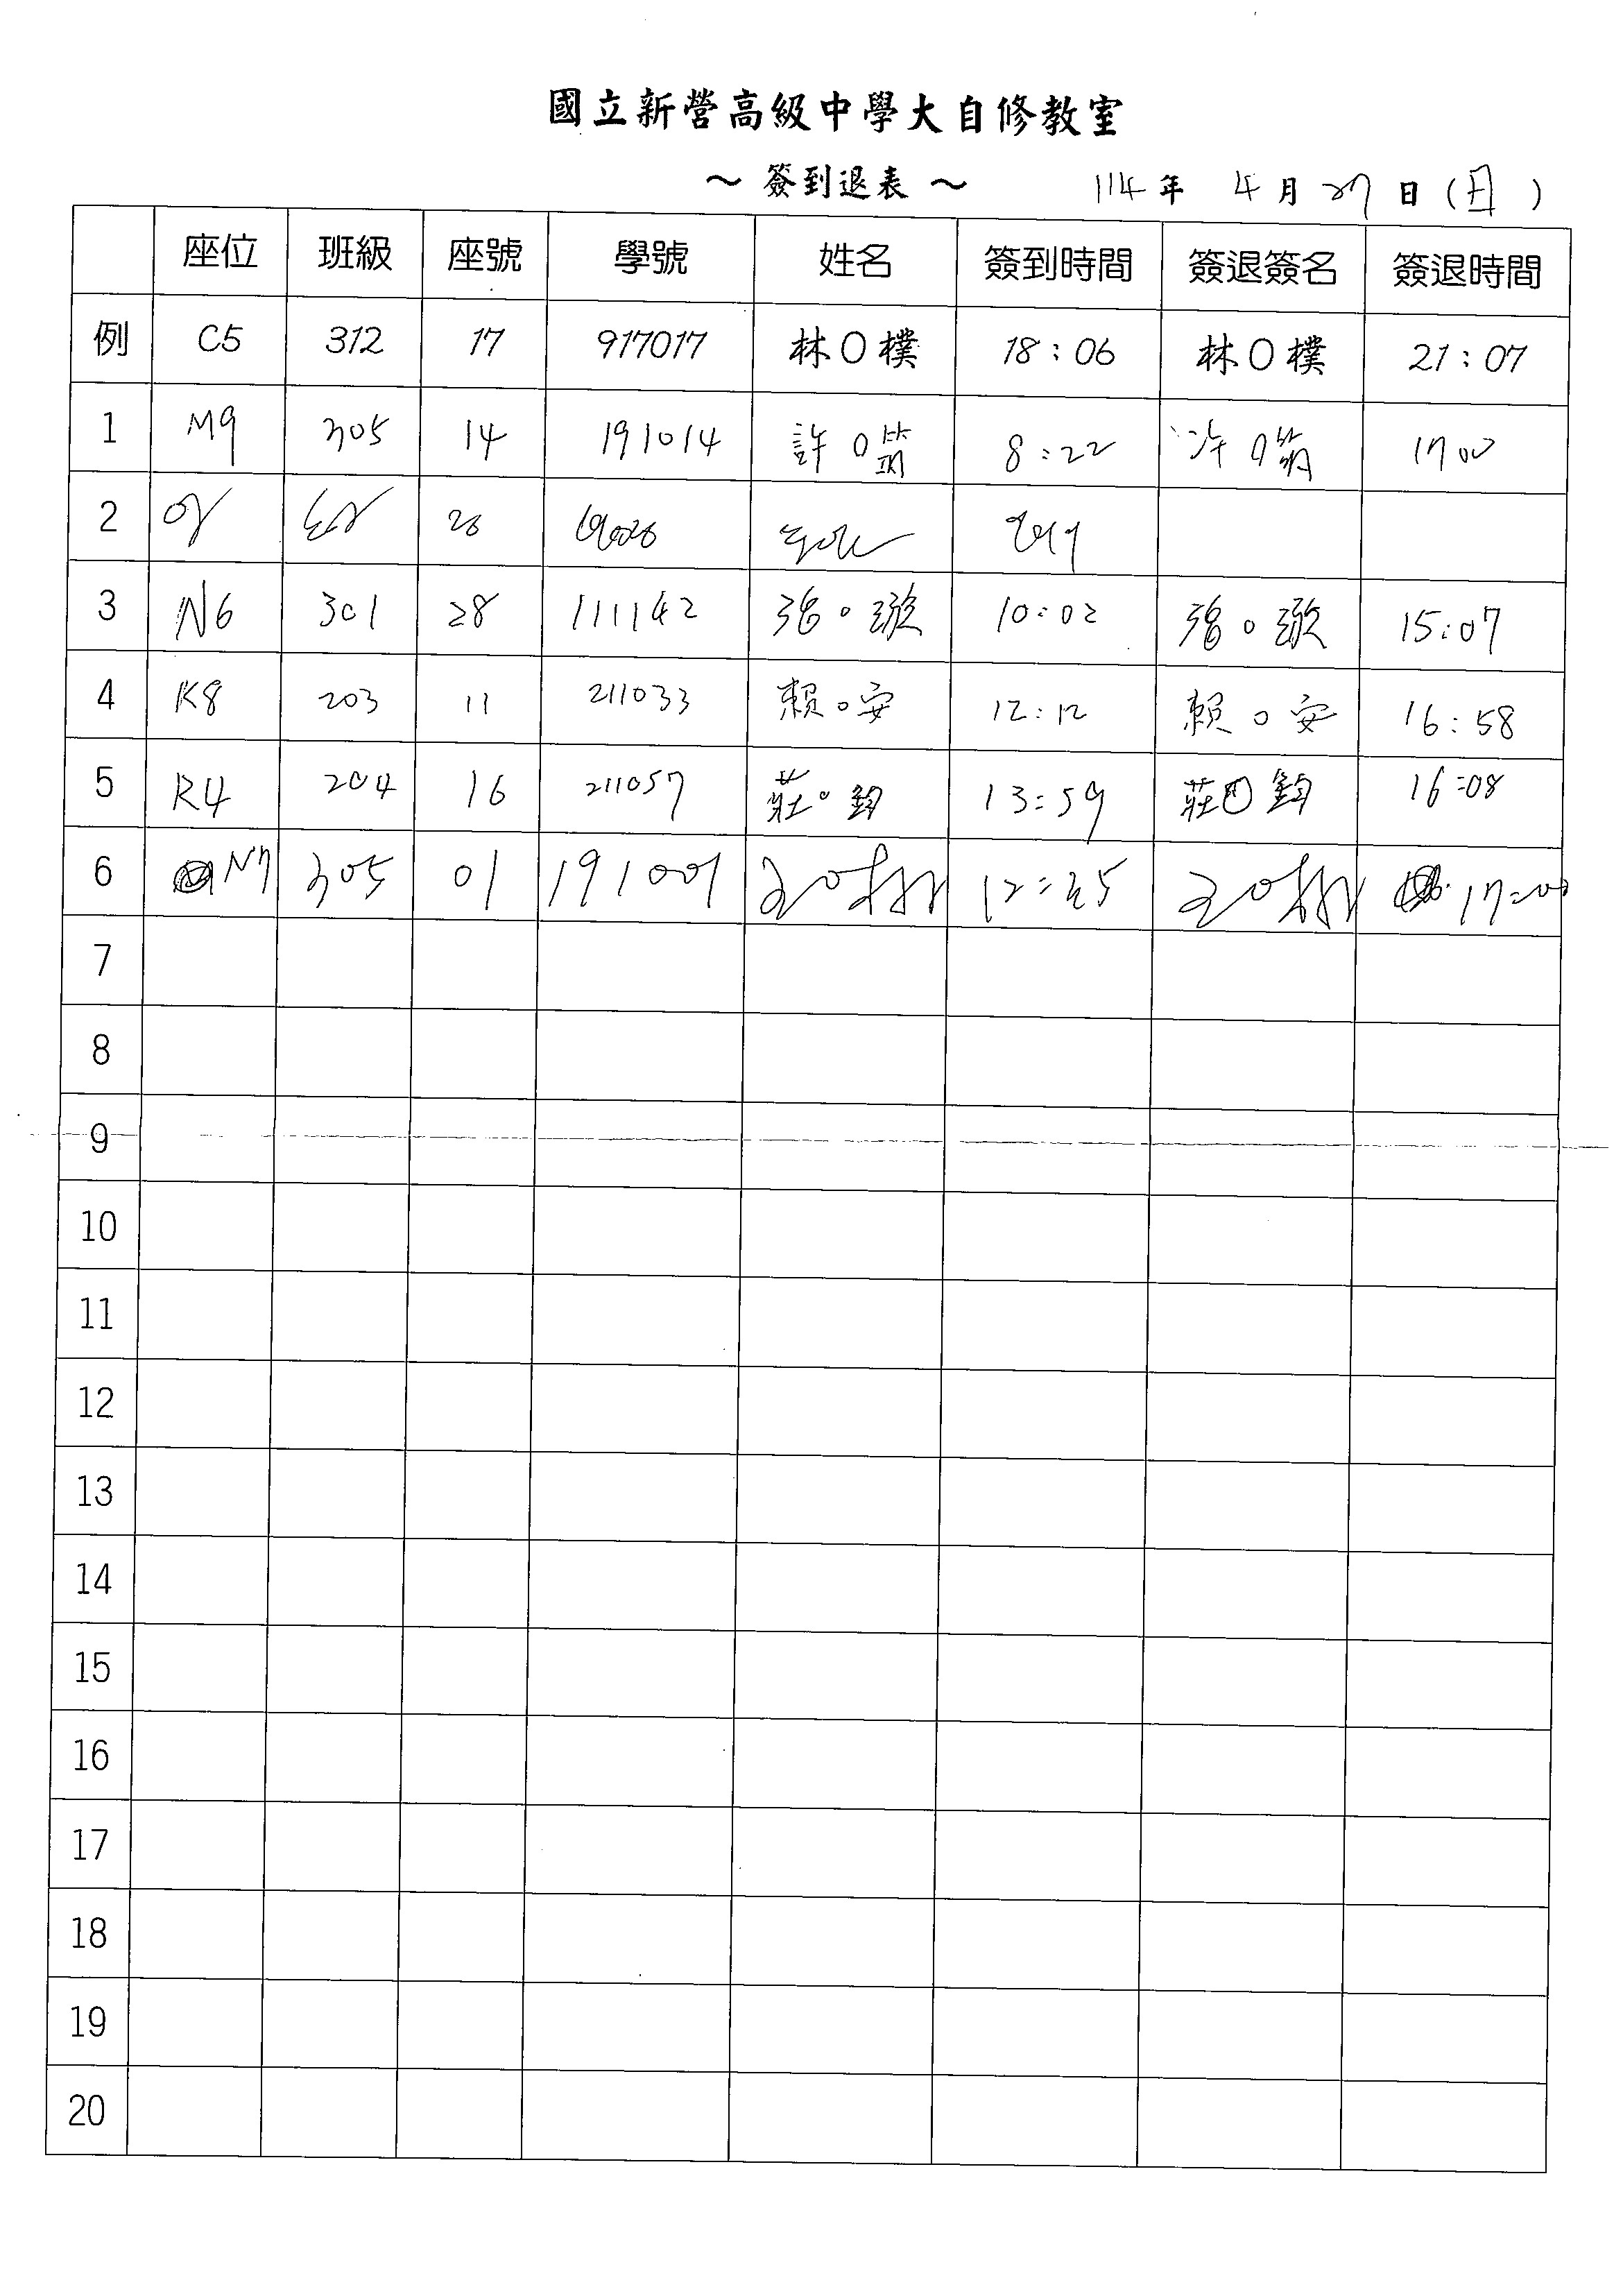 國立新營高級中學大自修教室
～ 簽到退表 ～ 114 年 4 月 27 日 (日)
座位 班級 座號 學號 姓名 簽到時間 簽退簽名 簽退時間
例 C5 312 17 917017 林O樸 18:06 林O樸 21:07
1 M9 305 14 191014 許O 8:22 許O 1700
2 28
3 N6 301 28 111142 張。璇 10:02 張。璇 15:07
4 K8 203 11 211033 賴。安 12:12 賴。安 16:58
5 R4 204 16 211057 莊。鈞 13:59 莊 鈞 16:08
6 N7 305 01 191001 12:35 17:00
7
8
9
10
11
12
13
14
15
16
17
18
19
20